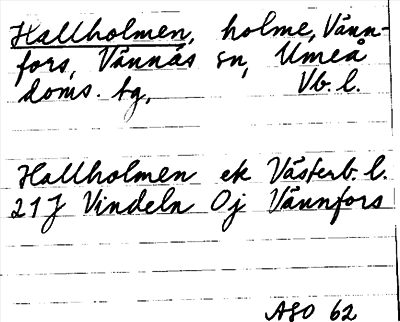 Hallholmen, holme, Vänn-
fors, Vännäs sn, Umeå
doms. tg, Vb. l.
Hallholmen ek Västerb. l.
21J Vindeln Oj Vännfors
ASO 62